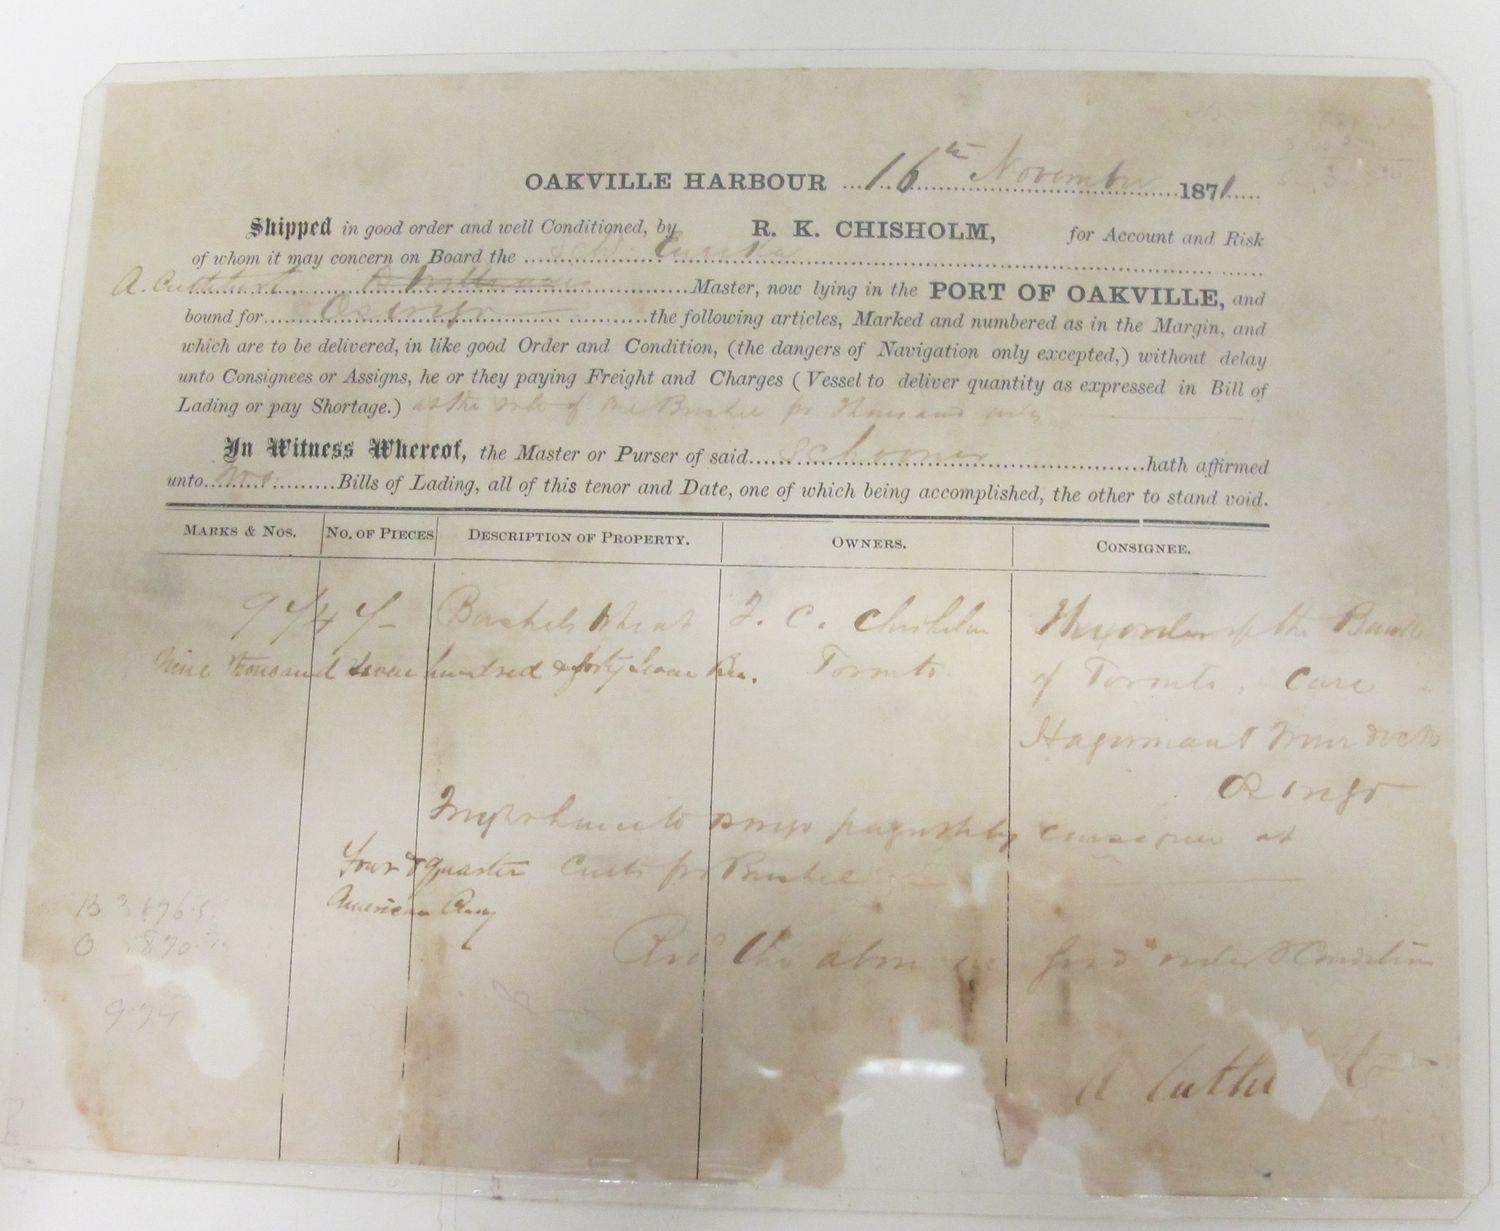 OAKVILLE HARBOUR 16th November 1871
Shipped in good order and well Conditioned, by R. K. CHISHOLM, for Account and Risk
of whom it may concern on Board the Schr. Eureka
A. Cuthbert Master, now lying in the PORT OF OAKVILLE, and
bound for Oswego the following articles, Marked and numbered as in the Margin, and
which are to be delivered, in like good Order and Condition, (the dangers of Navigation only excepted,) without delay
unto Consignees or Assigns, he or they paying Freight and Charges (Vessel to deliver quantity as expressed in Bill of
Lading or pay Shortage.) at the rate of one Bushel pr Thousand only
In Witness Whereof, the Master or Purser of said Schooner hath affirmed
unto Bills of Lading, all of this tenor and Date, one of which being accomplished, the other to stand void.
MARKS & NOS. NO. OF PIECES DESCRIPTION OF PROPERTY. OWNERS. CONSIGNEE.
9747 Bushels Wheat F. C. Chisholm The order of the Bank
Nine thousand seven hundred & forty seven Bus. Toronto of Toronto, Care
Hagerman & Murdock
Oswego
Freight hence to Oswego payable by consignee at
Four & quarter Cents pr Bushel
American Cury
Recd the above in good order & Condition
A Cuthbert